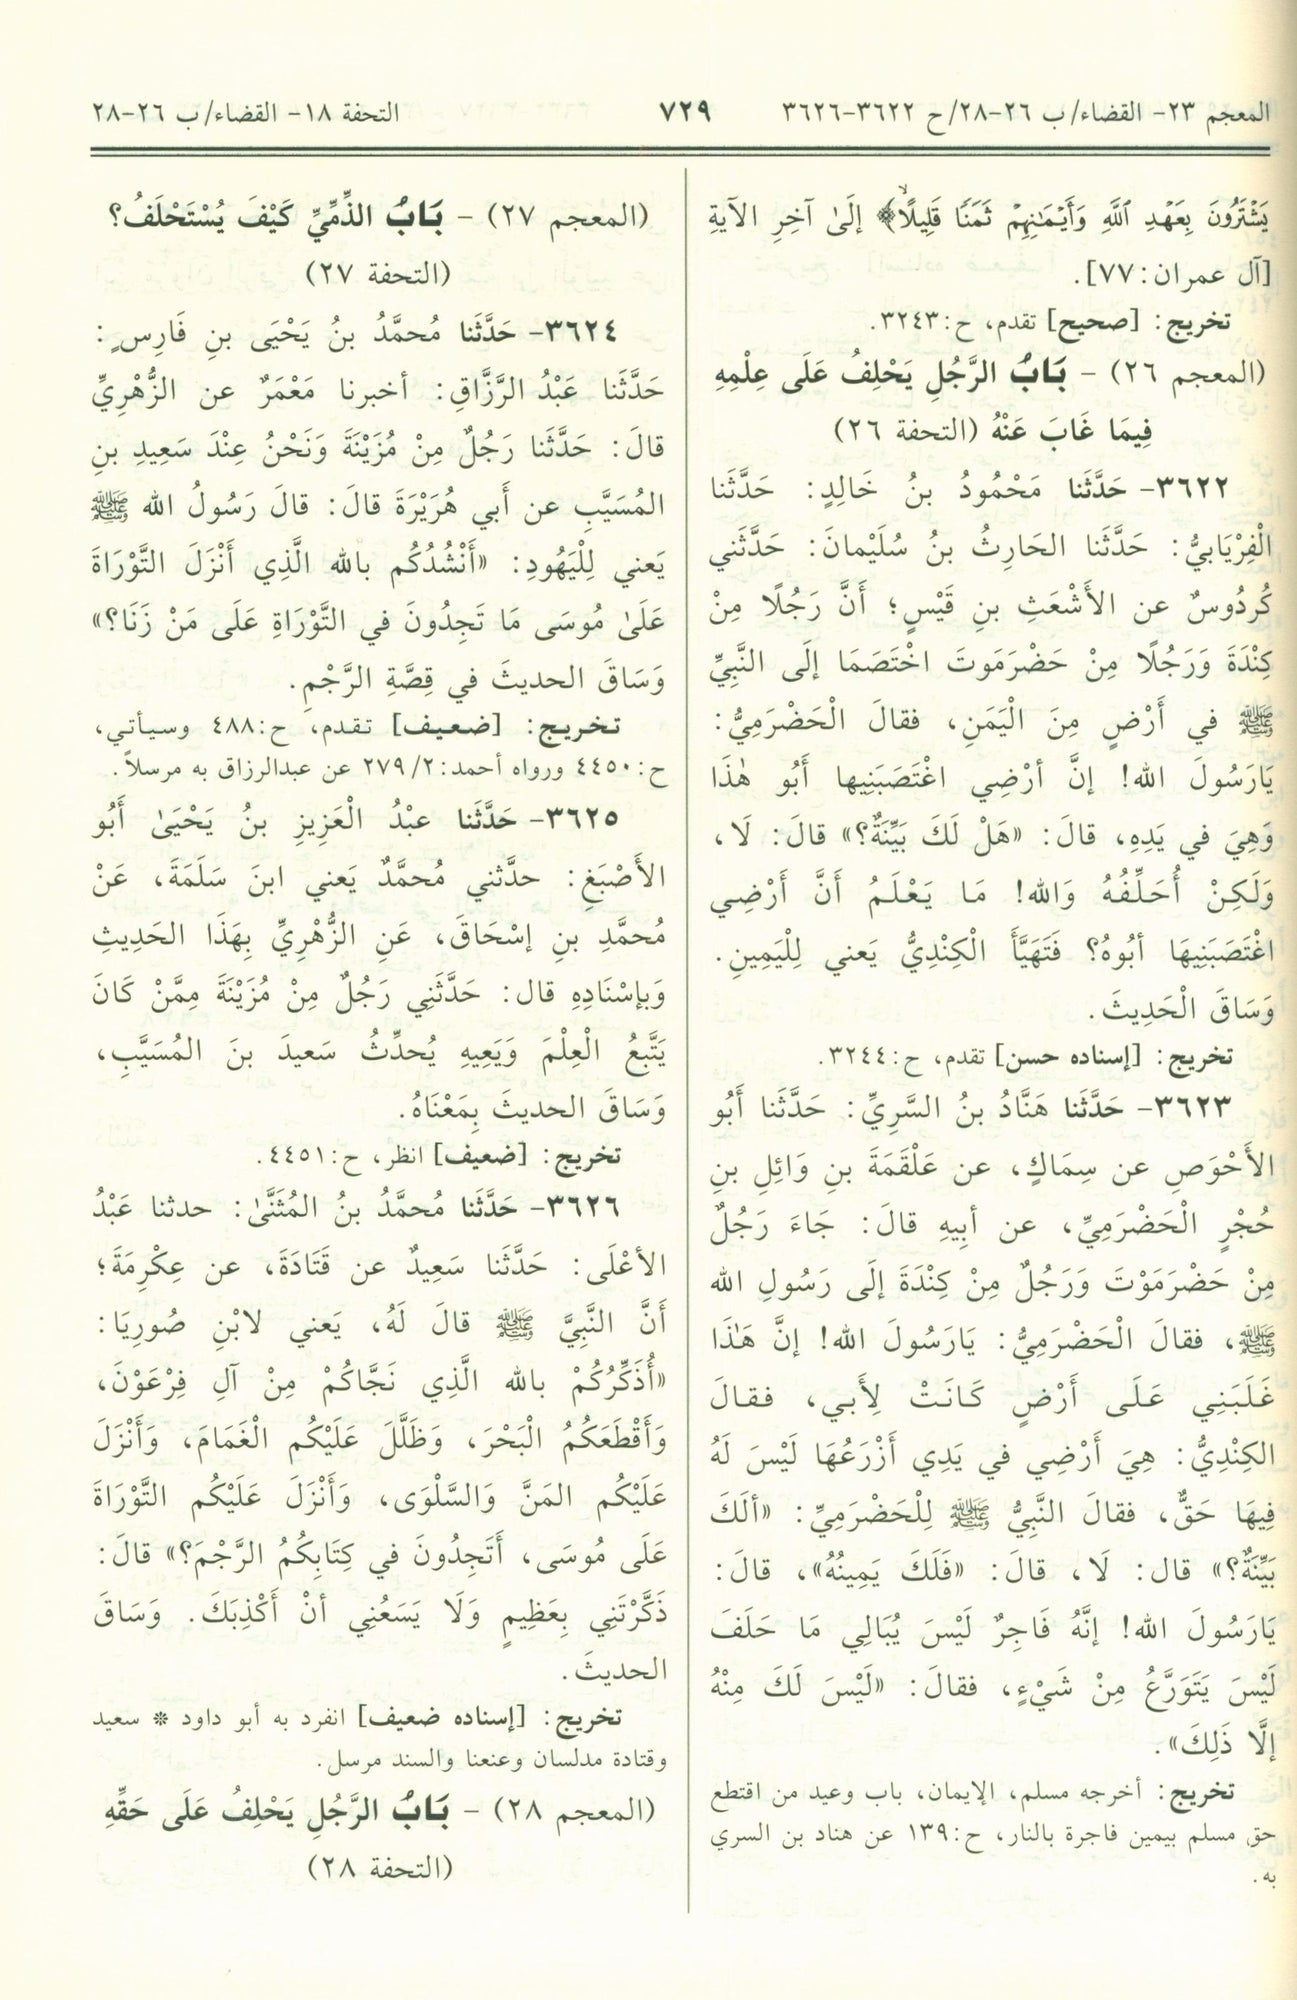 المعجم ٢٣- القضاء/ ب ٢٦-٢٨/ ح ٣٦٢٢-٣٦٢٦ ٧٢٩ التحفة ١٨- القضاء/ ب ٢٦-٢٨
يَشْتَرُونَ بِعَهْدِ ٱللَّهِ وَأَيْمَـٰنِهِمْ ثَمَنًا قَلِيلًا﴾ إلَىٰ آخِرِ الآيَةِ
[آل عمران: ٧٧].
تخريج: [صحيح] تقدم، ح: ٣٢٤٣.
(المعجم ٢٦) - بَابُ الرَّجُلِ يَحْلِفُ عَلَى عِلْمِهِ
فِيمَا غَابَ عَنْهُ (التحفة ٢٦)
٣٦٢٢- حَدَّثَنا مَحْمُودُ بنُ خَالِدٍ: حَدَّثَنا
الْفِرْيَابيُّ: حَدَّثَنا الحَارِثُ بنُ سُلَيْمانَ: حَدَّثَني
كُردُوسٌ عن الأَشْعَثِ بنِ قَيْسٍ؛ أَنَّ رَجُلًا مِنْ
كِنْدَةَ وَرَجُلًا مِنْ حَضْرَمَوتَ اخْتَصَمَا إلَى النَّبِيِّ
ﷺ في أَرْضٍ مِنَ الْيَمَنِ، فقالَ الْحَضْرَمِيُّ:
يَارَسُولَ الله! إنَّ أرْضِي اغْتَصَبَنِيها أَبُو هٰذَا
وَهِيَ في يَدِهِ، قالَ: «هَلْ لَكَ بَيِّنَةٌ؟» قالَ: لَا،
وَلَكِنْ أُحَلِّفُهُ وَالله! مَا يَعْلَمُ أَنَّ أَرْضِي
اغْتَصَبَنِيهَا أبُوهُ؟ فَتَهَيَّأَ الْكِنْدِيُّ يَعني لِلْيَمِينِ.
وَسَاقَ الْحَدِيثَ.
تخريج: [إسناده حسن] تقدم، ح: ٣٢٤٤.
٣٦٢٣- حَدَّثَنا هَنَّادُ بنُ السَّرِيِّ: حَدَّثَنا أَبُو
الأَحْوَصِ عن سِمَاكٍ، عن عَلْقَمَةَ بنِ وَائِلِ بنِ
حُجْرٍ الْحَضْرَمِيِّ، عن أبِيهِ قالَ: جَاءَ رَجُلٌ
مِنْ حَضْرَمَوْتَ وَرَجُلٌ مِنْ كِنْدَةَ إلَى رَسُولِ الله
ﷺ، فقالَ الْحَضْرَمِيُّ: يَارَسُولَ الله! إنَّ هَٰذَا
غَلَبَنِي عَلَى أَرْضٍ كَانَتْ لِأَبي، فقالَ
الكِنْدِيُّ: هِيَ أَرْضِي في يَدِي أَزْرَعُهَا لَيْسَ لَهُ
فِيهَا حَقٌّ، فقالَ النَّبِيُّ ﷺ لِلْحَضْرَمِيِّ: «ألَكَ
بَيِّنَةٌ؟» قال: لَا، قالَ: «فَلَكَ يَمِينُهُ»، قالَ:
يَارَسُولَ الله! إنَّهُ فَاجِرٌ لَيْسَ يُبَالِي مَا حَلَفَ
لَيْسَ يَتَوَرَّعُ مِنْ شَيْءٍ، فقالَ: «لَيْسَ لَكَ مِنْهُ
إلَّا ذَلِكَ».
تخريج: أخرجه مسلم، الإيمان، باب وعيد من اقتطع
حق مسلم بيمين فاجرة بالنار، ح: ١٣٩ عن هناد بن السري
به.
(المعجم ٢٧) - بَابُ الذِّمِّيِّ كَيْفَ يُسْتَحْلَفُ؟
(التحفة ٢٧)
٣٦٢٤- حَدَّثَنا مُحمَّدُ بنُ يَحْيَى بنِ فَارِسٍ:
حَدَّثَنا عَبْدُ الرَّزَّاقِ: أخبرنا مَعْمَرٌ عن الزُّهْرِيِّ
قالَ: حَدَّثَنا رَجُلٌ مِنْ مُزَيْنَةَ وَنَحْنُ عِنْدَ سَعِيدِ بنِ
المُسَيَّبِ عن أَبي هُرَيْرَةَ قالَ: قالَ رَسُولُ الله ﷺ
يَعني لِلْيَهُودِ: «أَنْشُدُكُم بالله الَّذِي أَنْزَلَ التَّوْرَاةَ
عَلَىٰ مُوسَى مَا تَجِدُونَ في التَّوْرَاةِ عَلَى مَنْ زَنَا؟»
وَسَاقَ الحديثَ في قِصَّةِ الرَّجْمِ.
تخريج: [ضعيف] تقدم، ح: ٤٨٨ وسيأتي،
ح: ٤٤٥٠ ورواه أحمد: ٢/ ٢٧٩ عن عبدالرزاق به مرسلاً.
٣٦٢٥- حَدَّثَنا عبْدُ الْعَزِيزِ بنُ يَحْيَىٰ أَبُو
الأَصْبَغِ: حدَّثني مُحمَّدٌ يَعني ابنَ سَلَمَةَ، عَنْ
مُحمَّدِ بنِ إسْحَاقَ، عَنِ الزُّهْرِيِّ بِهَذَا الحَدِيثِ
وَبإسْنَادِهِ قال: حَدَّثَنِي رَجُلٌ مِنْ مُزَيْنَةَ مِمَّنْ كَانَ
يَتَّبعُ الْعِلْمَ وَيَعِيهِ يُحدِّثُ سَعيدَ بنَ المُسَيَّبِ،
وَسَاقَ الحديثَ بِمَعْنَاهُ.
تخريج: [ضعيف] انظر، ح: ٤٤٥١.
٣٦٢٦- حَدَّثَنا مُحمَّدُ بنُ المُثَنَّىٰ: حدثنا عَبْدُ
الأعْلَى: حَدَّثَنا سَعِيدٌ عن قَتَادَةَ، عن عِكْرِمَةَ؛
أَنَّ النَّبِيَّ ﷺ قالَ لَهُ، يَعني لابْنِ صُورِيَا:
«أُذَكِّرُكُمْ بالله الَّذِي نَجَّاكُمْ مِنْ آلِ فِرْعَوْنَ،
وَأَقْطَعَكُمُ الْبَحْرَ، وَظَلَّلَ عَلَيْكُم الْغَمَامَ، وَأَنْزَلَ
عَلَيْكُم المَنَّ وَالسَّلْوَى، وَأَنْزَلَ عَلَيْكُم التَّوْرَاةَ
عَلَى مُوسَى، أَتَجِدُونَ في كِتَابِكُمُ الرَّجْمَ؟» قالَ:
ذَكَّرْتَنِي بِعَظِيمٍ وَلَا يَسَعُنِي أنْ أَكْذِبَكَ. وَسَاقَ
الحديثَ.
تخريج: [إسناده ضعيف] انفرد به أبو داود * سعيد
وقتادة مدلسان وعنعنا والسند مرسل.
(المعجم ٢٨) - بَابُ الرَّجُلِ يَحْلِفُ عَلَى حَقِّهِ
(التحفة ٢٨)